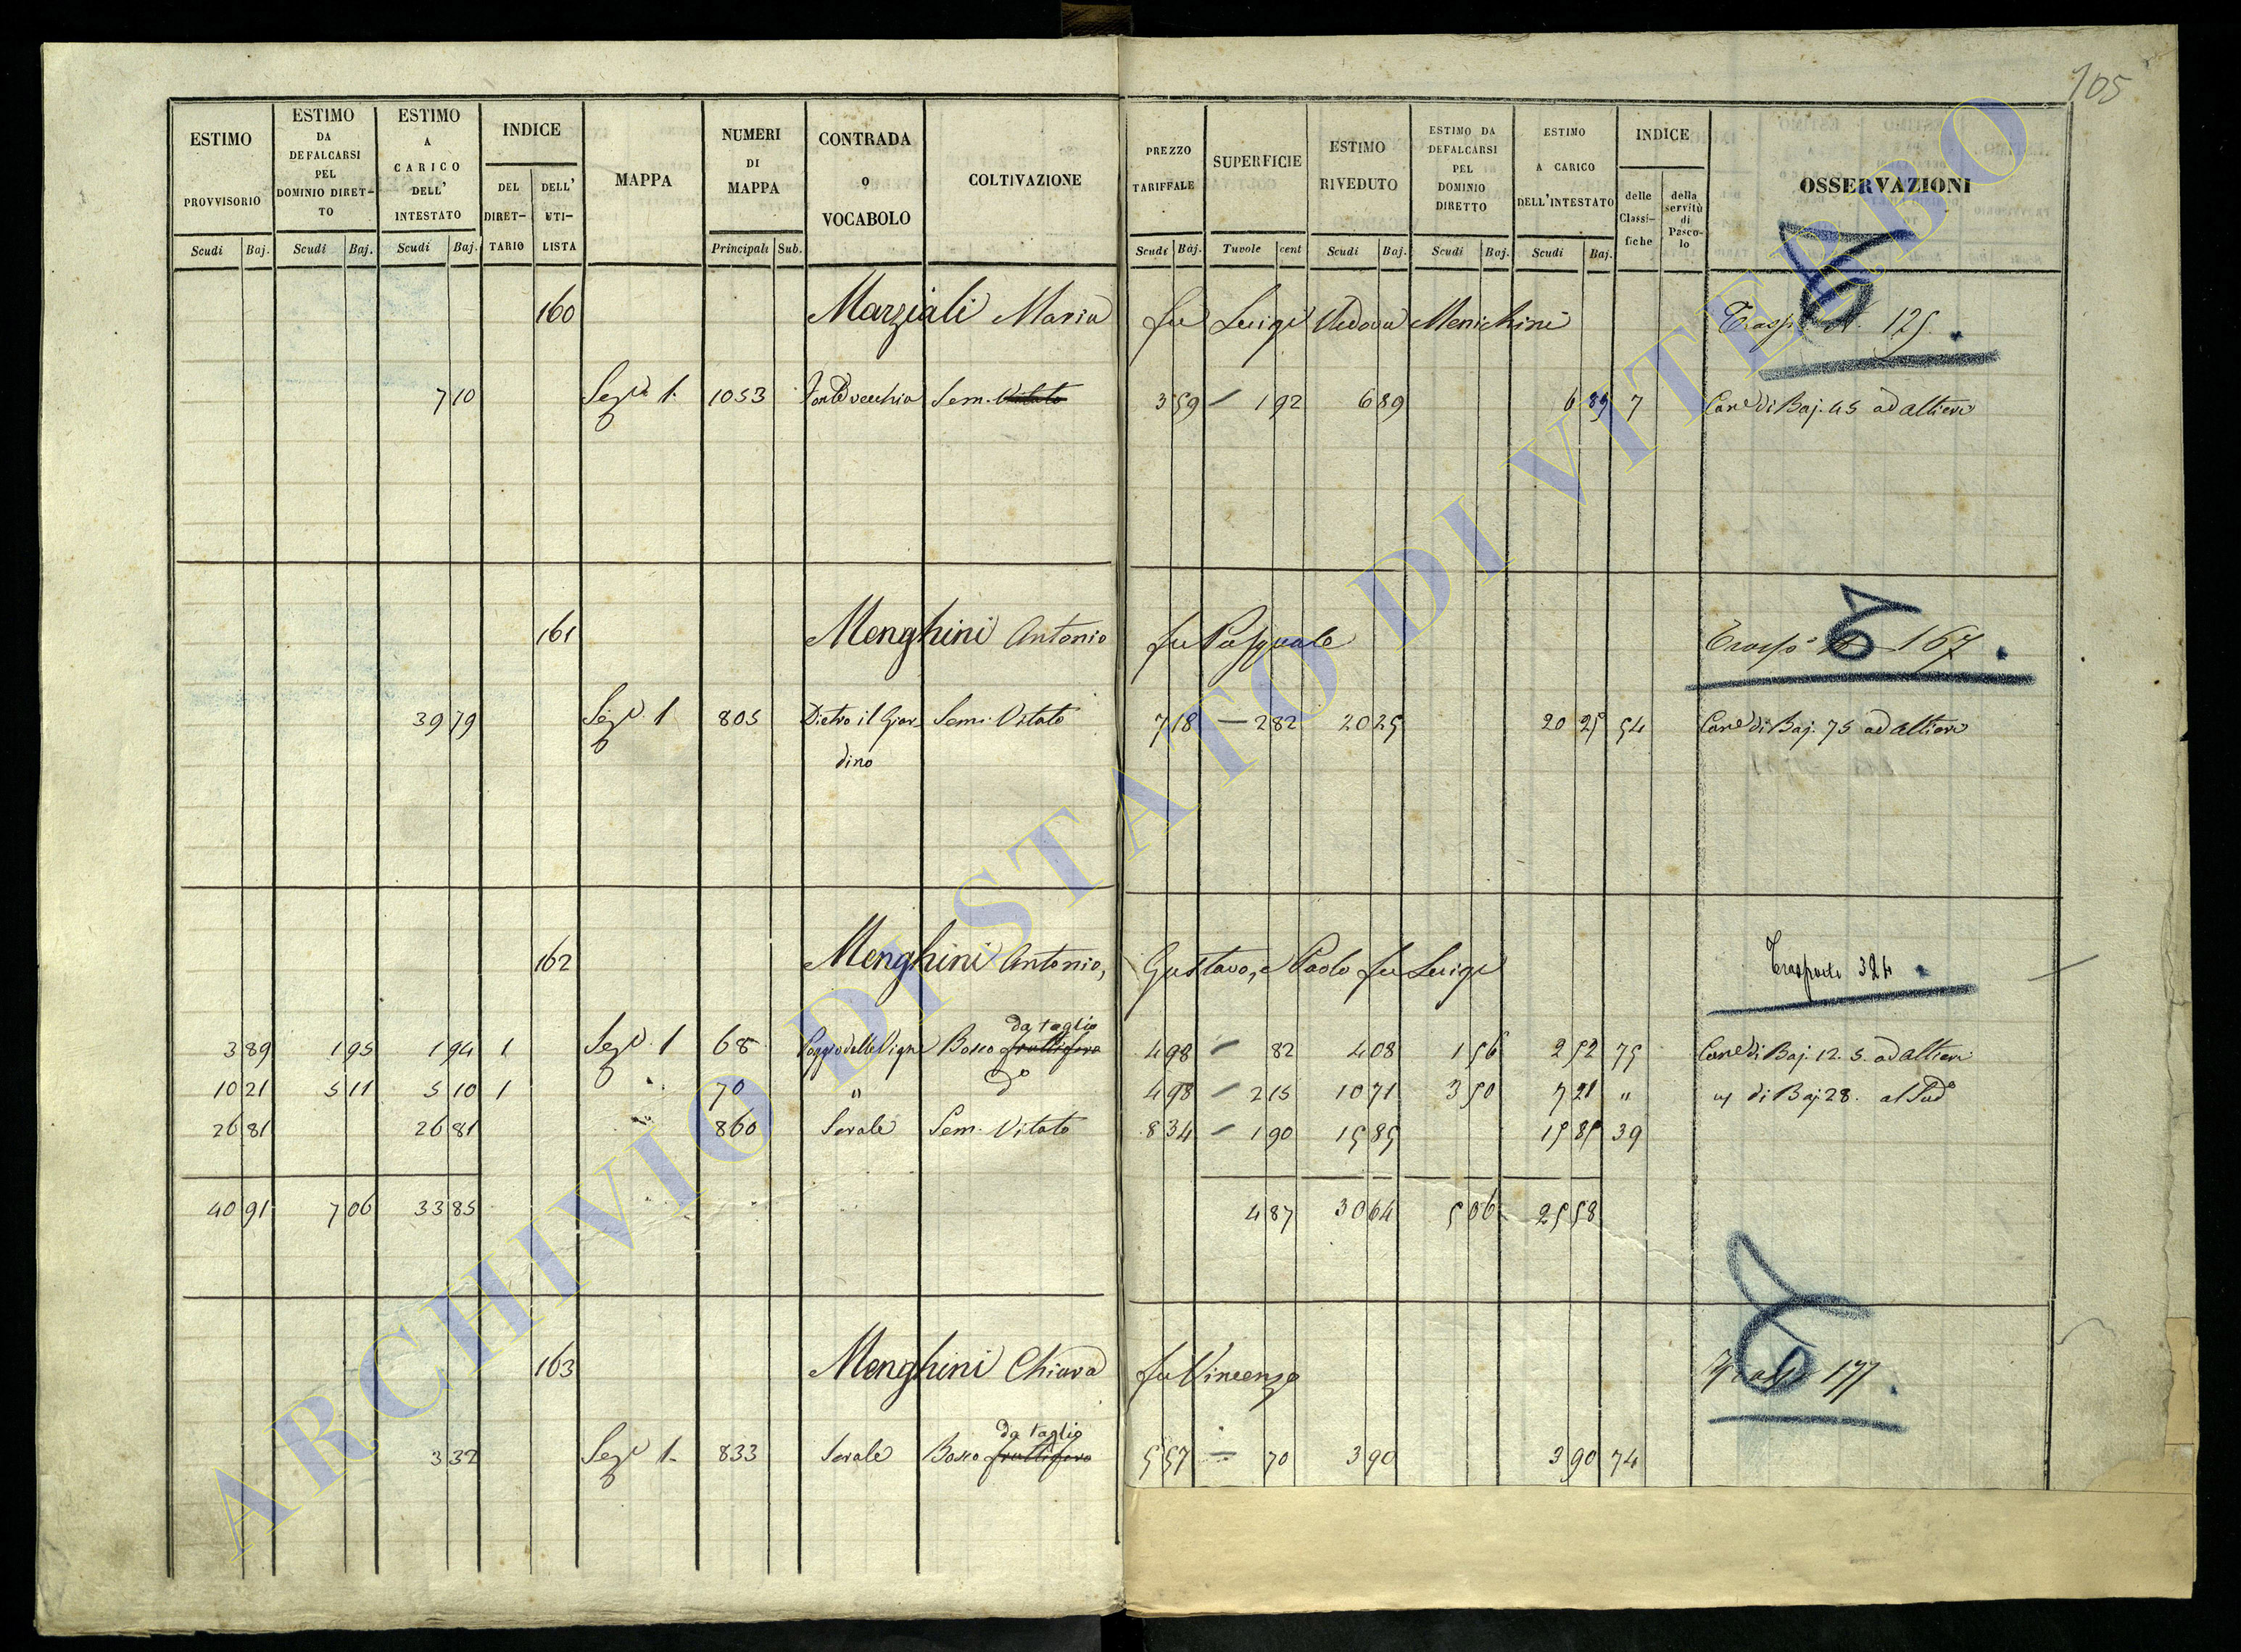 105
ESTIMO PROVVISORIO Scudi Baj. | ESTIMO DA DEFALCARSI PEL DOMINIO DIRET-TO Scudi Baj. | ESTIMO A CARICO DELL' INTESTATO Scudi Baj. | INDICE DEL DIRET-TARIO DELL' UTI-LISTA | MAPPA | NUMERI DI MAPPA Principali Sub. | CONTRADA O VOCABOLO | COLTIVAZIONE | PREZZO TARIFFALE Scudi Baj. | SUPERFICIE Tavole cent | ESTIMO RIVEDUTO Scudi Baj. | ESTIMO DA DEFALCARSI PEL DOMINIO DIRETTO Scudi Baj. | ESTIMO A CARICO DELL'INTESTATO Scudi Baj. | INDICE delle Classi-fiche della servitù di Pasco-lo | OSSERVAZIONI
160 Marziali Maria fu Luigi Vedova Menichini 125
7 10 Sez. 1. 1053 vecchia Sem. Vitato 3 59 1 92 6 89 6 89 7 di Baj. 45 ad Altieri
161 Menghini Antonio fu Pasquale 167
39 79 Sez. 1 805 Dietro il Giar- Sem. Vitato 7 18 2 82 20 25 20 25 54 di Baj. 75 ad Altieri
dino
162 Menghini Antonio, Gustavo, e Paolo fu Luigi Trasporto 324
da taglio
3 89 1 95 1 94 1 Sez. 1 68 Poggio delle Vigne Bosco fruttifero 4 98 82 4 08 1 56 2 52 75 di Baj. 12.5. ad Altieri
10 21 5 11 5 10 1 70 " do 4 98 2 15 10 71 3 50 7 21 " di Baj 28. al Sud
26 81 26 81 860 Serale Sem. Vitato 8 34 1 90 15 85 15 85 39
40 91 7 06 33 85 4 87 30 64 5 06 25 58
163 Menghini Chiara fu Vincenzo 177
da taglio
3 32 Sez. 1. 833 Serale Bosco fruttifero 5 57 70 3 90 3 90 74
ARCHIVIO DI STATO DI VITERBO